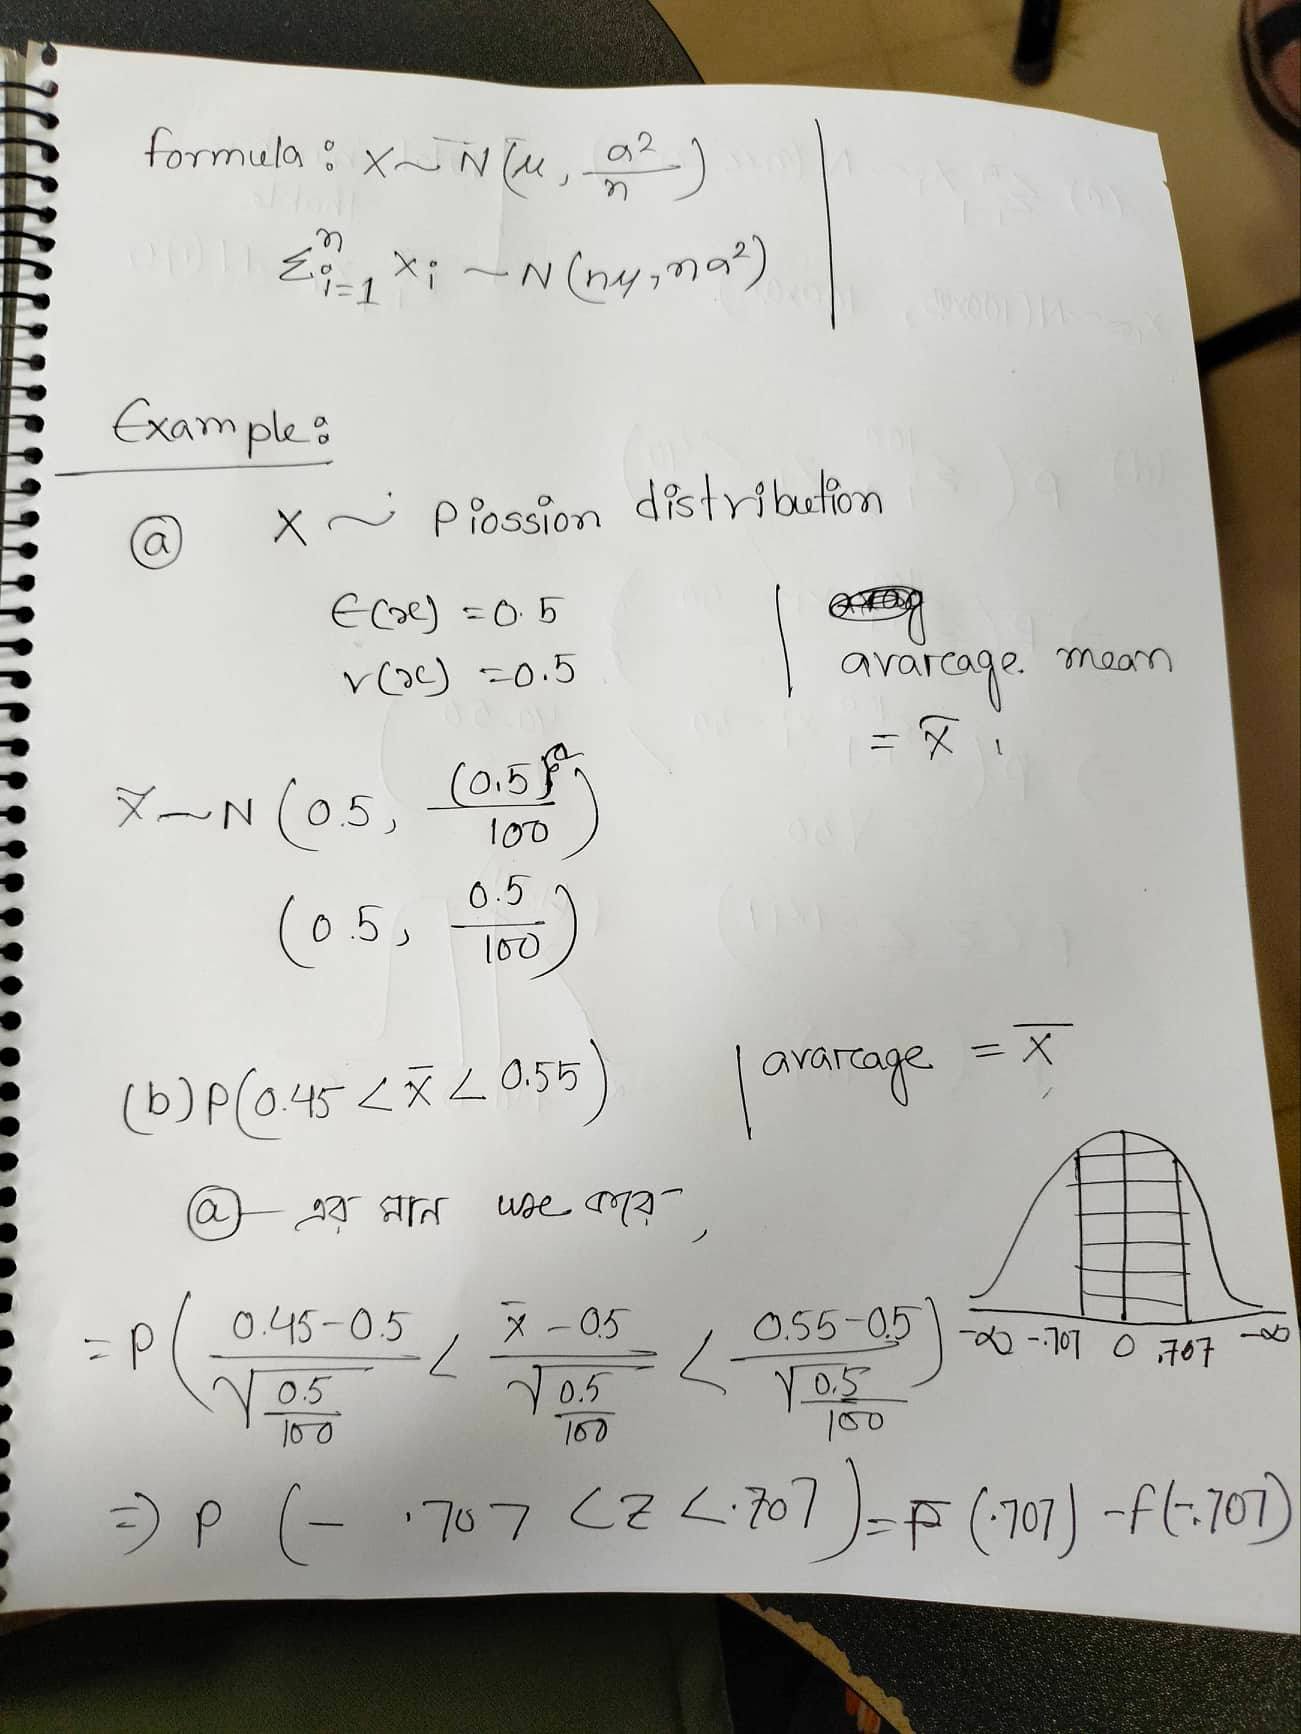 formula : X ~ N(μ, a²/n)
Σⁿᵢ₌₁ xᵢ ~ N(nμ, na²)
Example :
ⓐ X ~ Piossion distribution
E(x) = 0.5
v(x) = 0.5
avarage mean
= X̄
X̄ ~ N(0.5, (0.5)/100)
(0.5, 0.5/100)
(b) P(0.45 < X̄ < 0.55)
avarage = X̄
ⓐ এর মান use করে,
= P( (0.45-0.5)/√(0.5/100) < (x̄-0.5)/√(0.5/100) < (0.55-0.5)/√(0.5/100) )
-∞ -.707 0 .707 -∞
=> P (- .707 < Z < .707) = F (.707) - f(-.707)